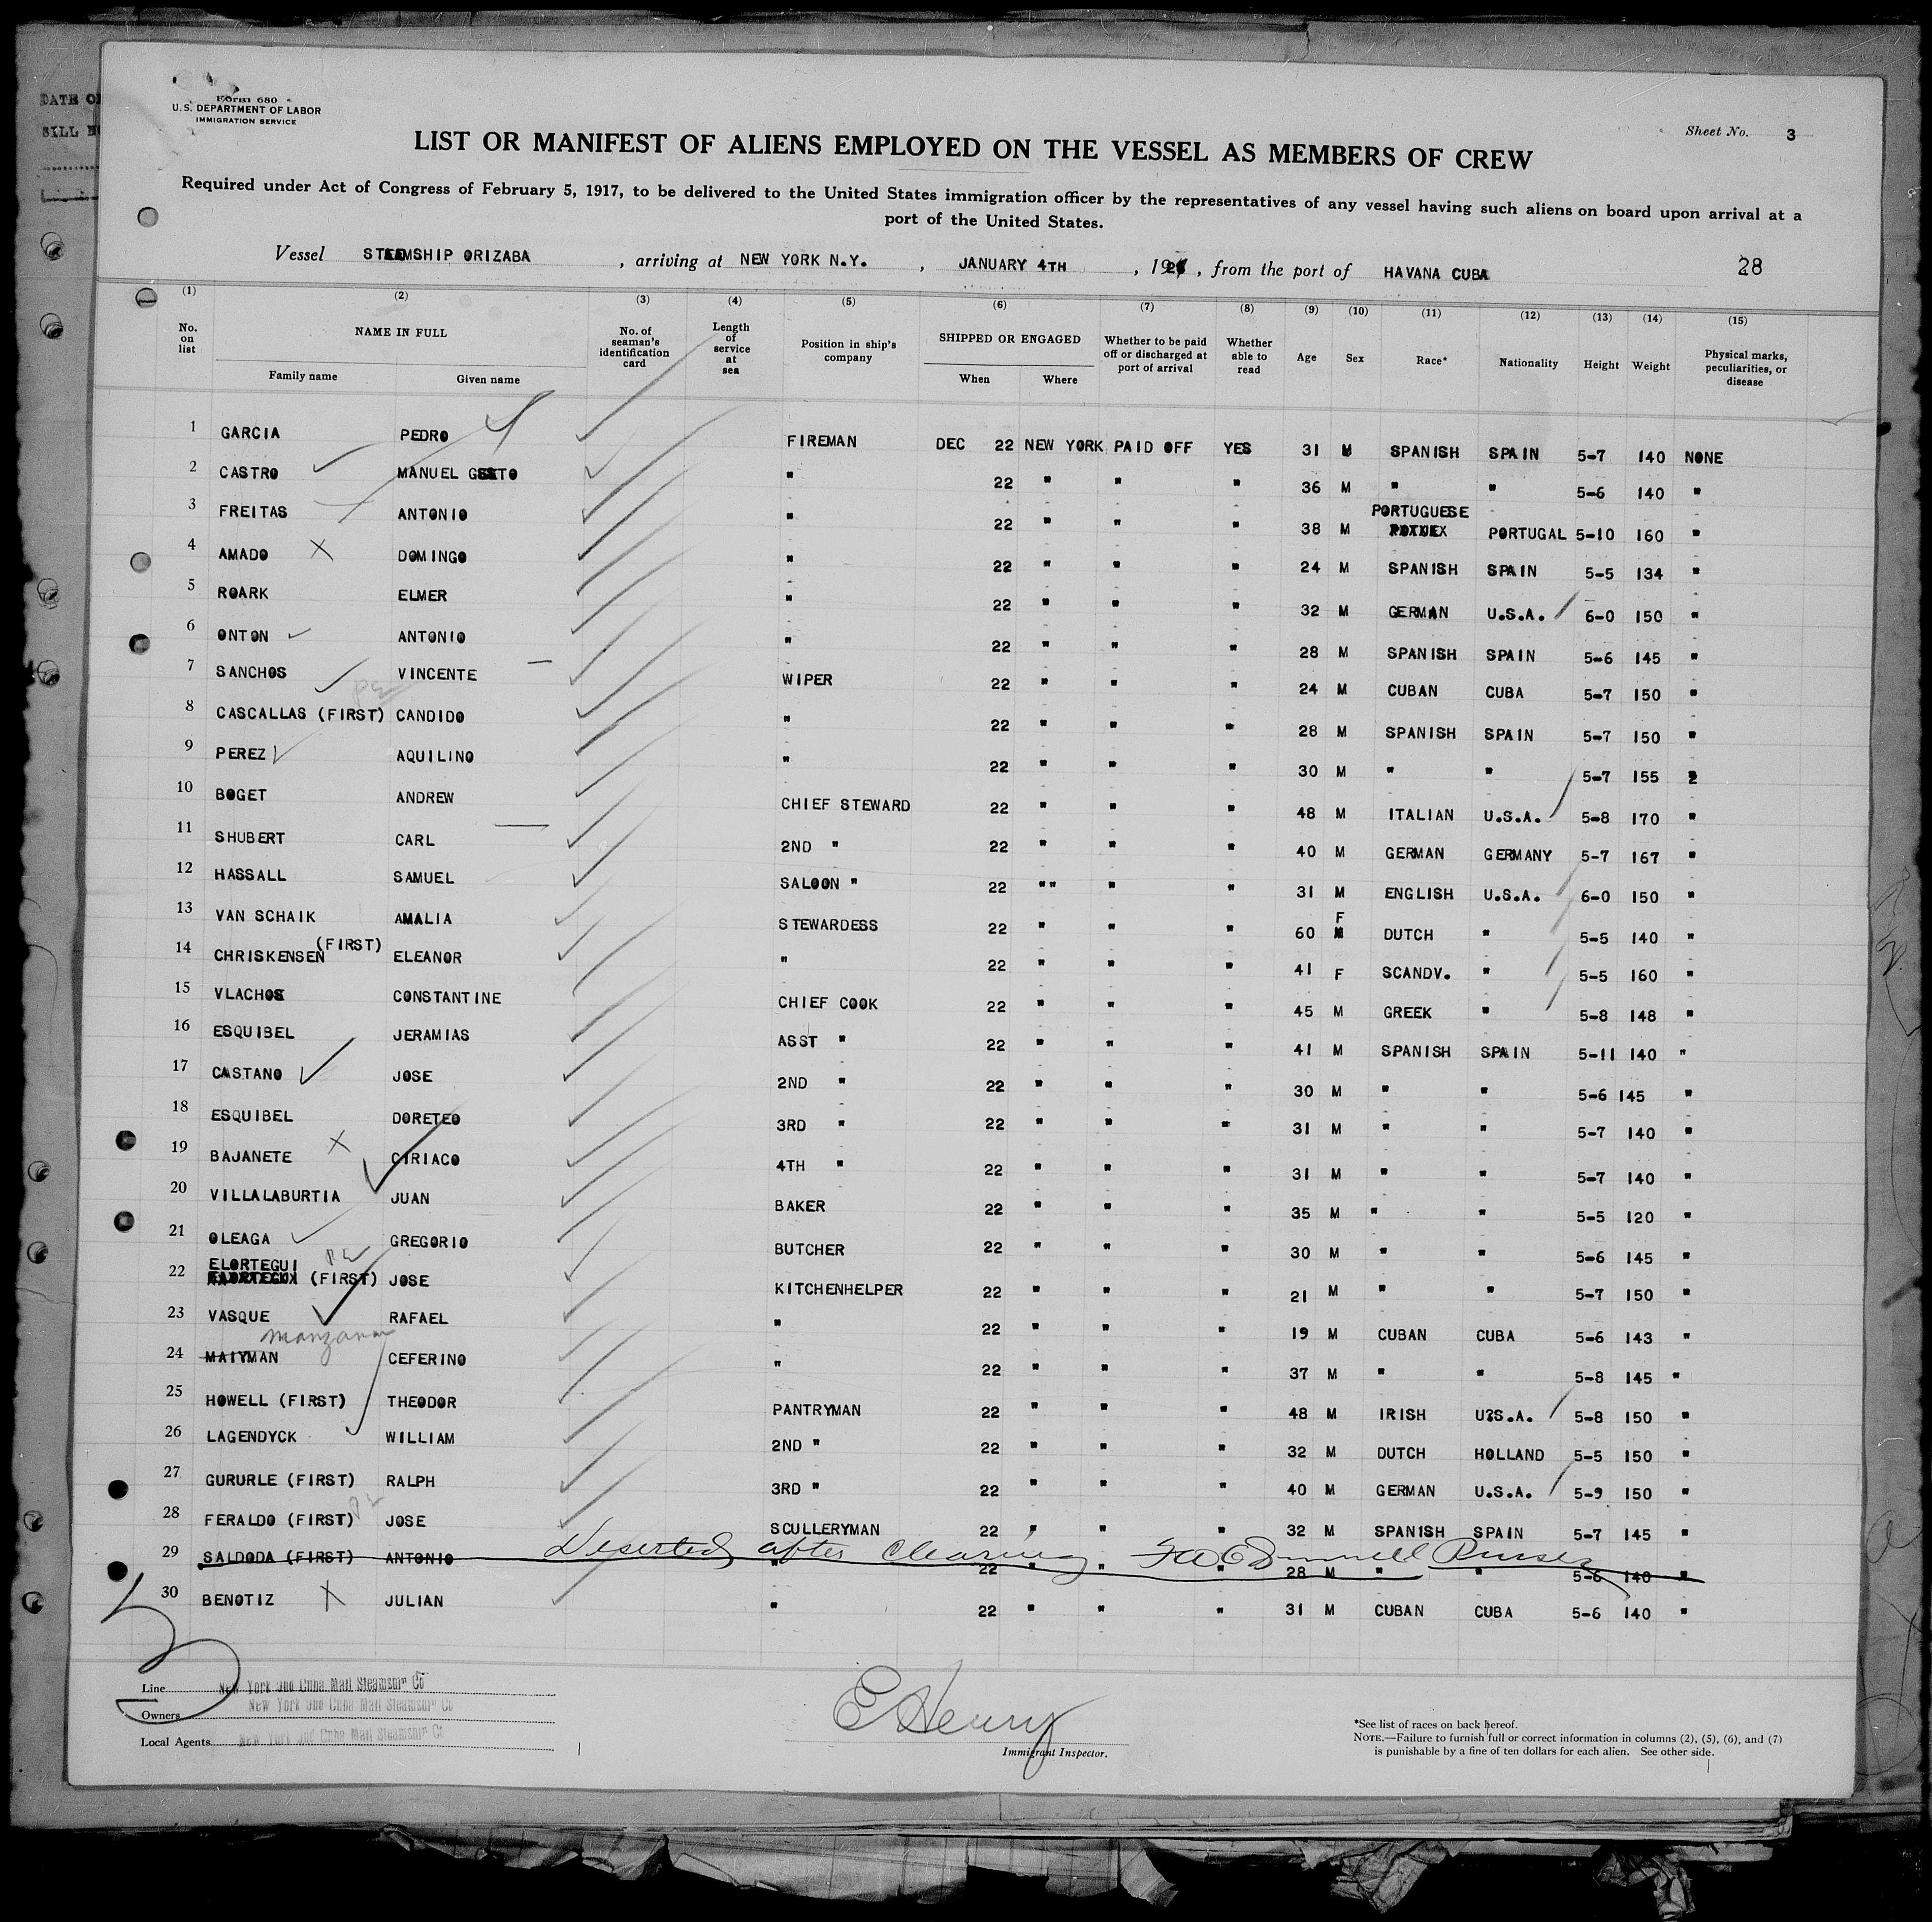 DATE OF
BILL NO
Form 680
U.S. DEPARTMENT OF LABOR
IMMIGRATION SERVICE
Sheet No. 3
LIST OR MANIFEST OF ALIENS EMPLOYED ON THE VESSEL AS MEMBERS OF CREW
Required under Act of Congress of February 5, 1917, to be delivered to the United States immigration officer by the representatives of any vessel having such aliens on board upon arrival at a
port of the United States.
Vessel STEAMSHIP ORIZABA, arriving at NEW YORK N.Y., JANUARY 4TH, 192, from the port of HAVANA CUBA 28
(1) (2) (3) (4) (5) (6) (7) (8) (9) (10) (11) (12) (13) (14) (15)
No. on list NAME IN FULL Family name Given name No. of seaman's identification card Length of service at sea Position in ship's company SHIPPED OR ENGAGED When Where Whether to be paid off or discharged at port of arrival Whether able to read Age Sex Race* Nationality Height Weight Physical marks, peculiarities, or disease
1 GARCIA PEDRO FIREMAN DEC 22 NEW YORK PAID OFF YES 31 M SPANISH SPAIN 5-7 140 NONE
2 CASTRO MANUEL " 22 " " " 36 M " " 5-6 140 "
3 FREITAS ANTONIO " 22 " " " 38 M PORTUGUESE PORTUGAL 5-10 160 "
4 AMADO X DOMINGO " 22 " " " 24 M SPANISH SPAIN 5-5 134 "
5 ROARK ELMER " 22 " " " 32 M GERMAN U.S.A. 6-0 150 "
6 ONTON ANTONIO " 22 " " " 28 M SPANISH SPAIN 5-6 145 "
7 SANCHOS VINCENTE WIPER 22 " " " 24 M CUBAN CUBA 5-7 150 "
8 CASCALLAS (FIRST) CANDIDO " 22 " " " 28 M SPANISH SPAIN 5-7 150 "
9 PEREZ AQUILINO " 22 " " " 30 M " " 5-7 155 2
10 BOGET ANDREW CHIEF STEWARD 22 " " " 48 M ITALIAN U.S.A. 5-8 170 "
11 SHUBERT CARL 2ND " 22 " " " 40 M GERMAN GERMANY 5-7 167 "
12 HASSALL SAMUEL SALOON " 22 "" " " 31 M ENGLISH U.S.A. 6-0 150 "
13 VAN SCHAIK AMALIA STEWARDESS 22 " " " 60 F DUTCH " 5-5 140 "
14 CHRISKENSEN (FIRST) ELEANOR " 22 " " " 41 F SCANDV. " 5-5 160 "
15 VLACHOS CONSTANTINE CHIEF COOK 22 " " " 45 M GREEK " 5-8 148 "
16 ESQUIBEL JERAMIAS ASST " 22 " " " 41 M SPANISH SPAIN 5-11 140 "
17 CASTANO JOSE 2ND " 22 " " " 30 M " " 5-6 145 "
18 ESQUIBEL DORETEO 3RD " 22 " " " 31 M " " 5-7 140 "
19 BAJANETE X CIRIACO 4TH " 22 " " " 31 M " " 5-7 140 "
20 VILLALABURTIA JUAN BAKER 22 " " " 35 M " " 5-5 120 "
21 OLEAGA GREGORIO BUTCHER 22 " " " 30 M " " 5-6 145 "
22 ELORTEGUI (FIRST) JOSE KITCHENHELPER 22 " " " 21 M " " 5-7 150 "
23 VASQUE RAFAEL " 22 " " " 19 M CUBAN CUBA 5-6 143 "
24 MAIYMAN CEFERINO " 22 " " " 37 M " " 5-8 145 "
25 HOWELL (FIRST) THEODOR PANTRYMAN 22 " " " 48 M IRISH U?S.A. 5-8 150 "
26 LAGENDYCK WILLIAM 2ND " 22 " " " 32 M DUTCH HOLLAND 5-5 150 "
27 GURURLE (FIRST) RALPH 3RD " 22 " " " 40 M GERMAN U.S.A. 5-9 150 "
28 FERALDO (FIRST) JOSE SCULLERYMAN 22 " " " 32 M SPANISH SPAIN 5-7 145 "
Deserted after clearing Purser
29 SALDODA (FIRST) ANTONIO " 22 " " " 28 M " " 5-6 140 "
30 BENOTIZ X JULIAN " 22 " " " 31 M CUBAN CUBA 5-6 140 "
Line New York and Cuba Mail Steamship Co
Owners New York and Cuba Mail Steamship Co
Local Agents New York and Cuba Mail Steamship Co
E Henry
Immigrant Inspector.
*See list of races on back hereof.
NOTE.—Failure to furnish full or correct information in columns (2), (5), (6), and (7)
is punishable by a fine of ten dollars for each alien. See other side.